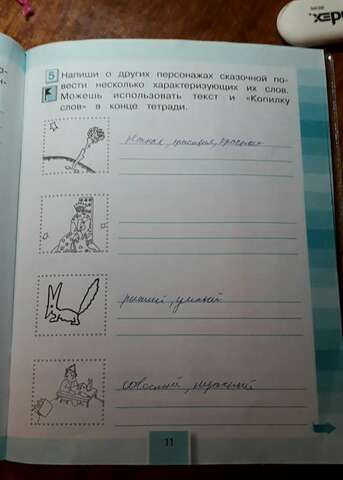 5 Напиши о других персонажах сказочной по-
вести несколько характеризующих их слов.
Можешь использовать текст и «Копилку
слов» в конце тетради.
красивая,
рыжий, умный
11